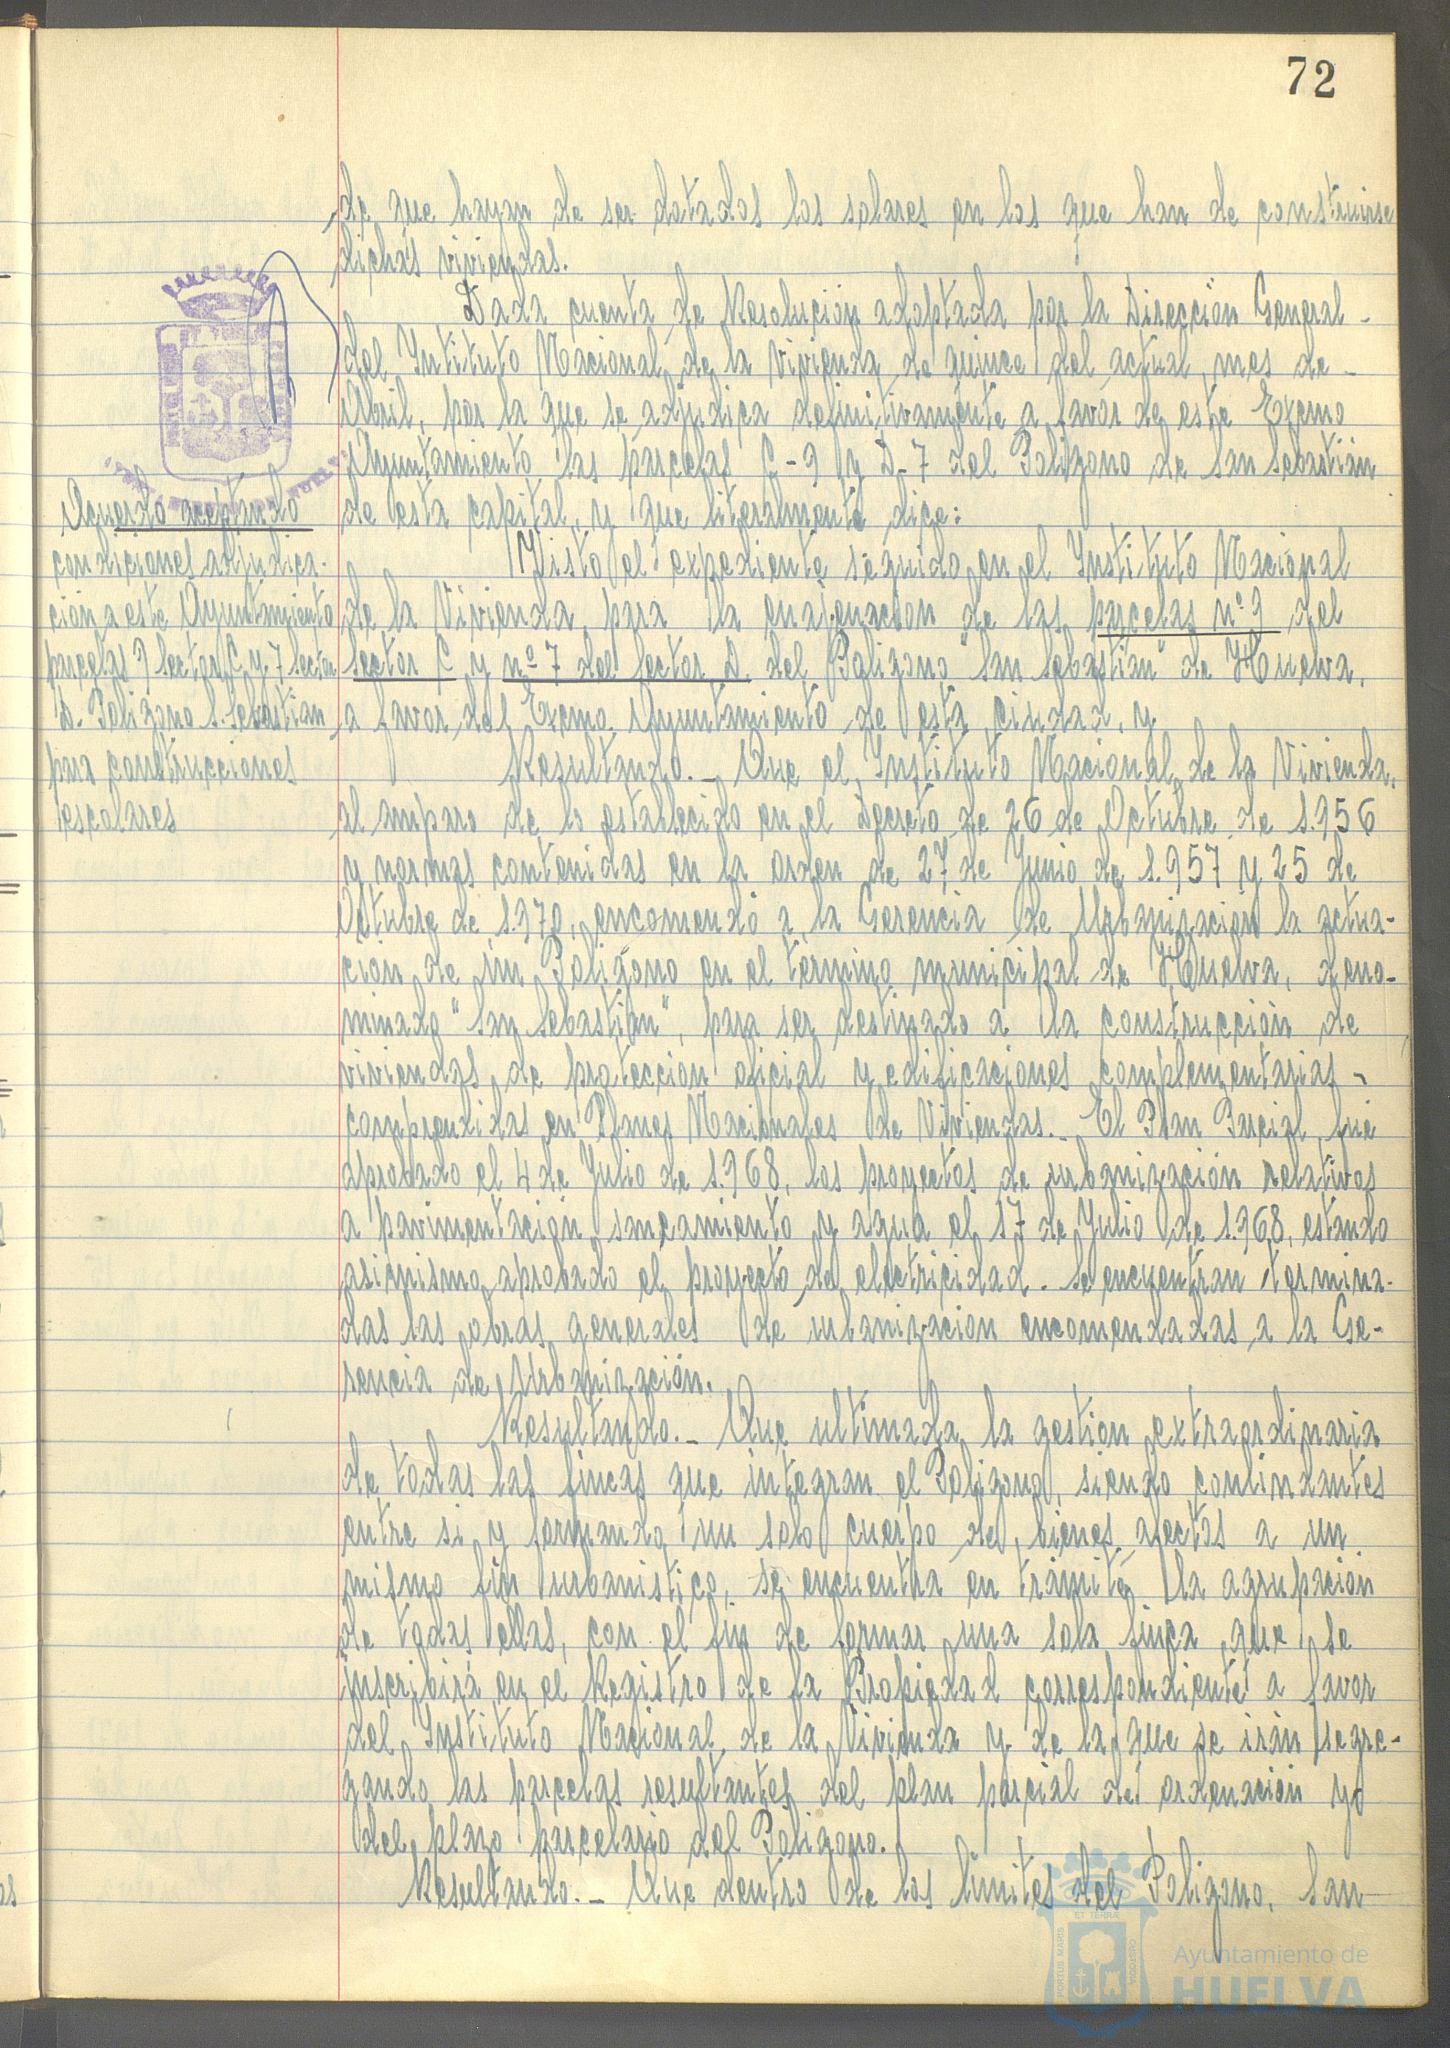 72
de que hayan de ser dotados los solares en los que han de construirse
dichas viviendas.
Dada cuenta de Resolución adoptada por la Dirección General
del Intituto Nacional de la Vivienda de quince del actual mes de
Abril, por la que se adjudica definitivamente a favor de este Excmo
Ayuntamiento las parcelas C-9 y D-7 del Poligono de San Sebastián
de esta capital, y que literalmente dice:
Acuerdo aceptando
condiciones adjudica-
ción a este Ayuntamiento
parcelas 9 sector C y 7 sector
D. Poligono S. Sebastian
para construcciones
escolares
Visto el expediente seguido en el Instituto Nacional
de la Vivienda, para la enajenación de las parcelas nº 9 del
sector C y nº 7 del sector D. del Poligono "San Sebastián" de Huelva,
a favor del Excmo. Ayuntamiento de esta ciudad, y
Resultando.- Que el Instituto Nacional de la Vivienda,
al amparo de lo establecido en el Decreto de 26 de Octubre de 1.956
y normas contenidas en la orden de 27 de Junio de 1.957 y 25 de
Octubre de 1.970, encomendó a la Gerencia de Urbanización la actua-
ción de un Poligono en el término municipal de Huelva, deno-
minado "San Sebastián", para ser destinado a la construcción de
viviendas de protección oficial y edificaciones complementarias
comprendidas en Planes Nacionales de Viviendas.- El Plan Parcial, fué
aprobado el 4 de Julio de 1.968, los proyectos de urbanización relativos
a pavimentación, saneamiento y agua el 17 de Julio de 1.968, estando
asimismo aprobado el proyecto de electricidad. Se encuentran termina-
das las obras generales de urbanización encomendadas a la Ge-
rencia de Urbanización.
Resultando.- Que ultimada la gestión extraordinaria
de todas las fincas que integran el Poligono, siendo colindantes
entre si y formando un solo cuerpo de bienes afectos a un
mismo fin urbanistico, se encuentra en trámite la agrupación
de todas ellas, con el fin de formar una sola finca que se
inscribirá en el Registro de la Propiedad correspondiente a favor
del Instituto Nacional de la Vivienda y de la que se irán segre-
gando las parcelas resultantes del plan parcial de ordenación y
del plano parcelario del Poligono.
Resultando.- Que dentro de los limites del Poligono, San
Ayuntamiento de
HUELVA